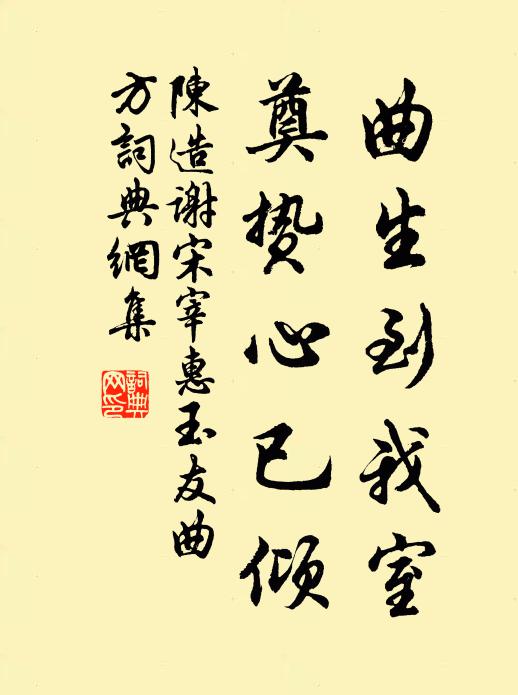 曲生到我室
奠贽心已倾
陳造謝宋宰惠玉友曲
方詞典網集
詞典
网印